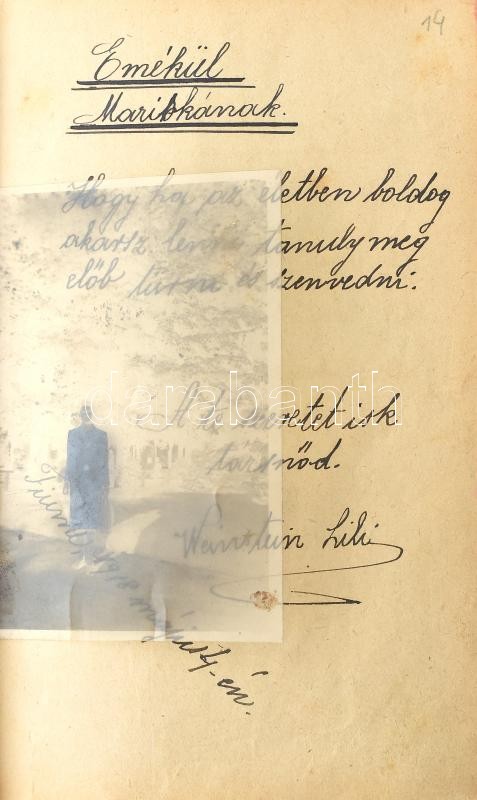 14
Emékül
Mariskának.
Hogy ha az életben boldog
akarsz lenni tanuly meg
előb türni és szenvedni.
A te szerető isk
társnőd.
Weinstein Lili
Fiume, 1918 május 4-én.
darabanth